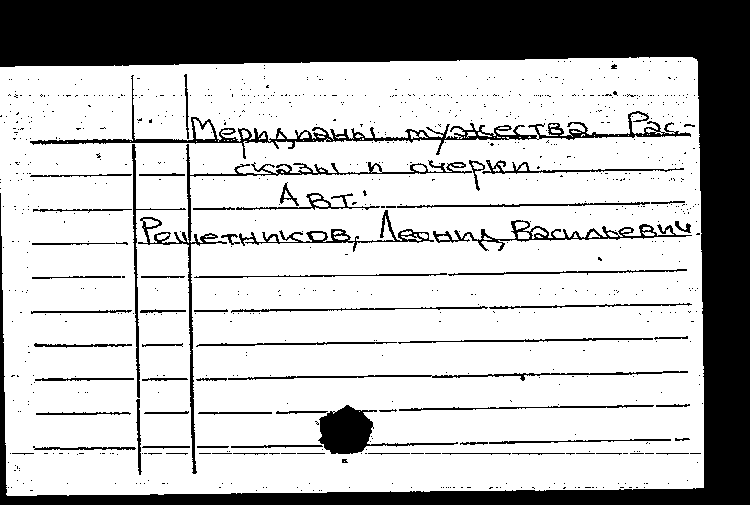 Меридианы мужества. Рас-
сказы и очерки.
Авт.:
Решетников, Леонид Васильевич